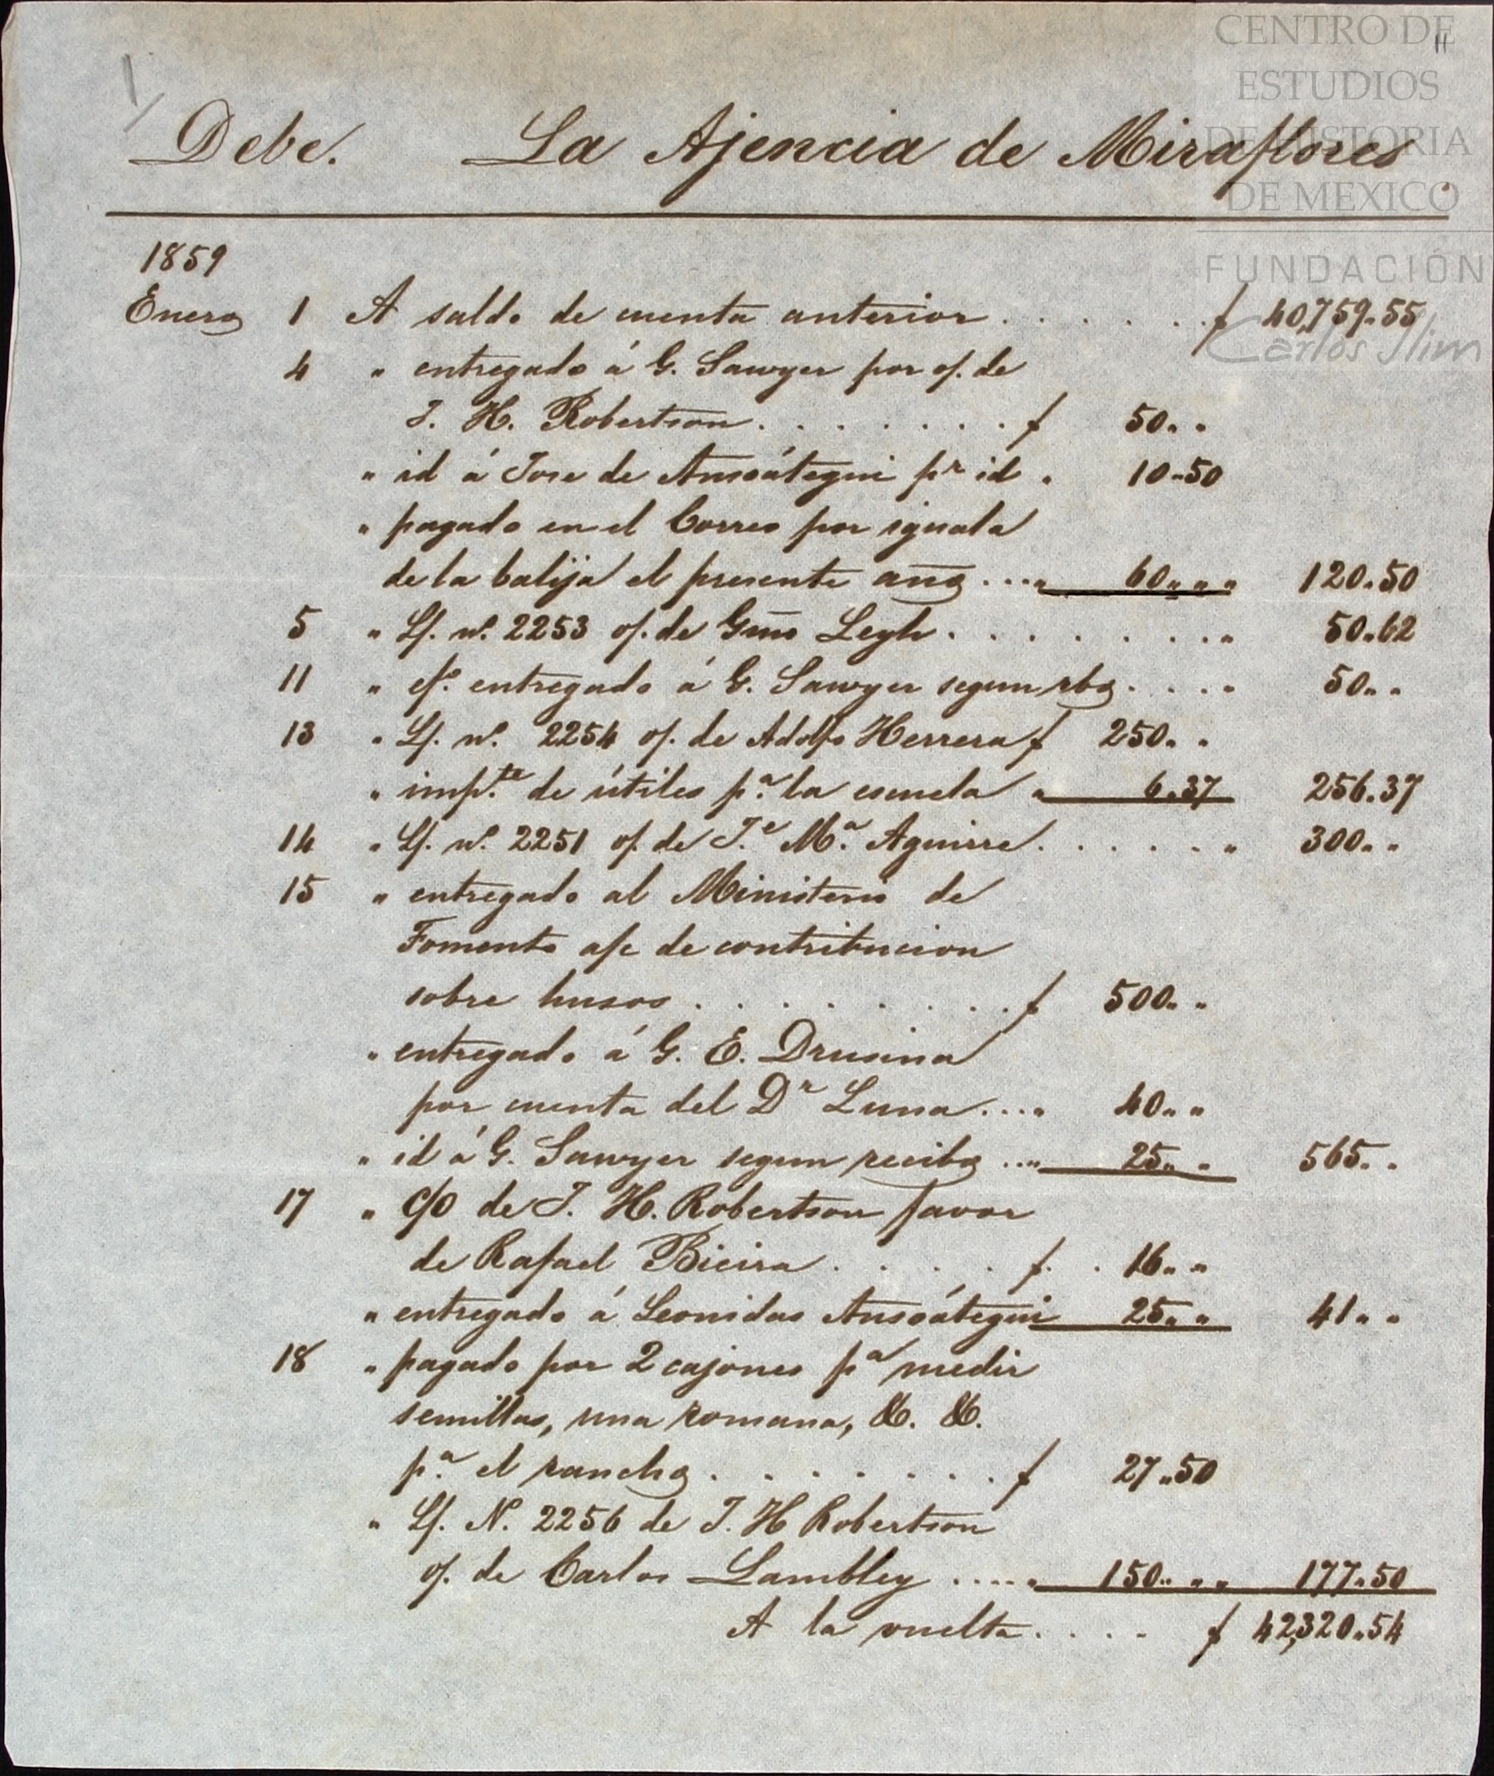 CENTRO DE
ESTUDIOS
DE HISTORIA
DE MEXICO
FUNDACIÓN
Carlos Slim
11
1
Debe. La Ajencia de Miraflores
1859
Enero 1 A saldo de cuenta anterior . . . . . . $ 40,759.55
4 " entregado á G. Sawyer por o/. de
J. H. Robertson . . . . . . . $ 50.. .
" id á Jose de Ansoátegui pr id . 10.50
" pagado en el Correo por iguala
de la balija el presente año .... 60.. " " 120.50
5 " Lf. nº. 2253 o/. de Gmo Legh . . . . . . . " 50.62
11 " efº. entregado á G. Sawyer segun rbo . . . . " 50.. .
13 " Lf. nº. 2254 o/. de Adolfo Herrera $ 250.. .
" imp.te de útiles pª. la escuela " 6.37 256.37
14 " Lf. nº. 2251 o/. de J.e M.ª Aguirre . . . . . . " 300.. .
15 " entregado al Ministerio de
Fomento a/c de contribucion
sobre husos . . . . . . . . $ 500.. .
" entregado á G. E. Drusina
por cuenta del Dr Luna .... 40.. "
" id á G. Sawyer segun recibo .... 25.. . 565.. .
17 " c/o de J. H. Robertson favor
de Rafael Bieira . . . . . $ . . 16.. "
" entregado á Leonidas Ansoátegui 25.. " 41.. .
18 " pagado por 2 cajones pª medir
semillas, una romana, &. &.
p.ª el rancho . . . . . . . $ 27.50
" Lf. N. 2256 de J. H Robertson
o/. de Carlos Lambley ..... 150.. " " 177.50
A la vuelta . . . . $ 42,320.54